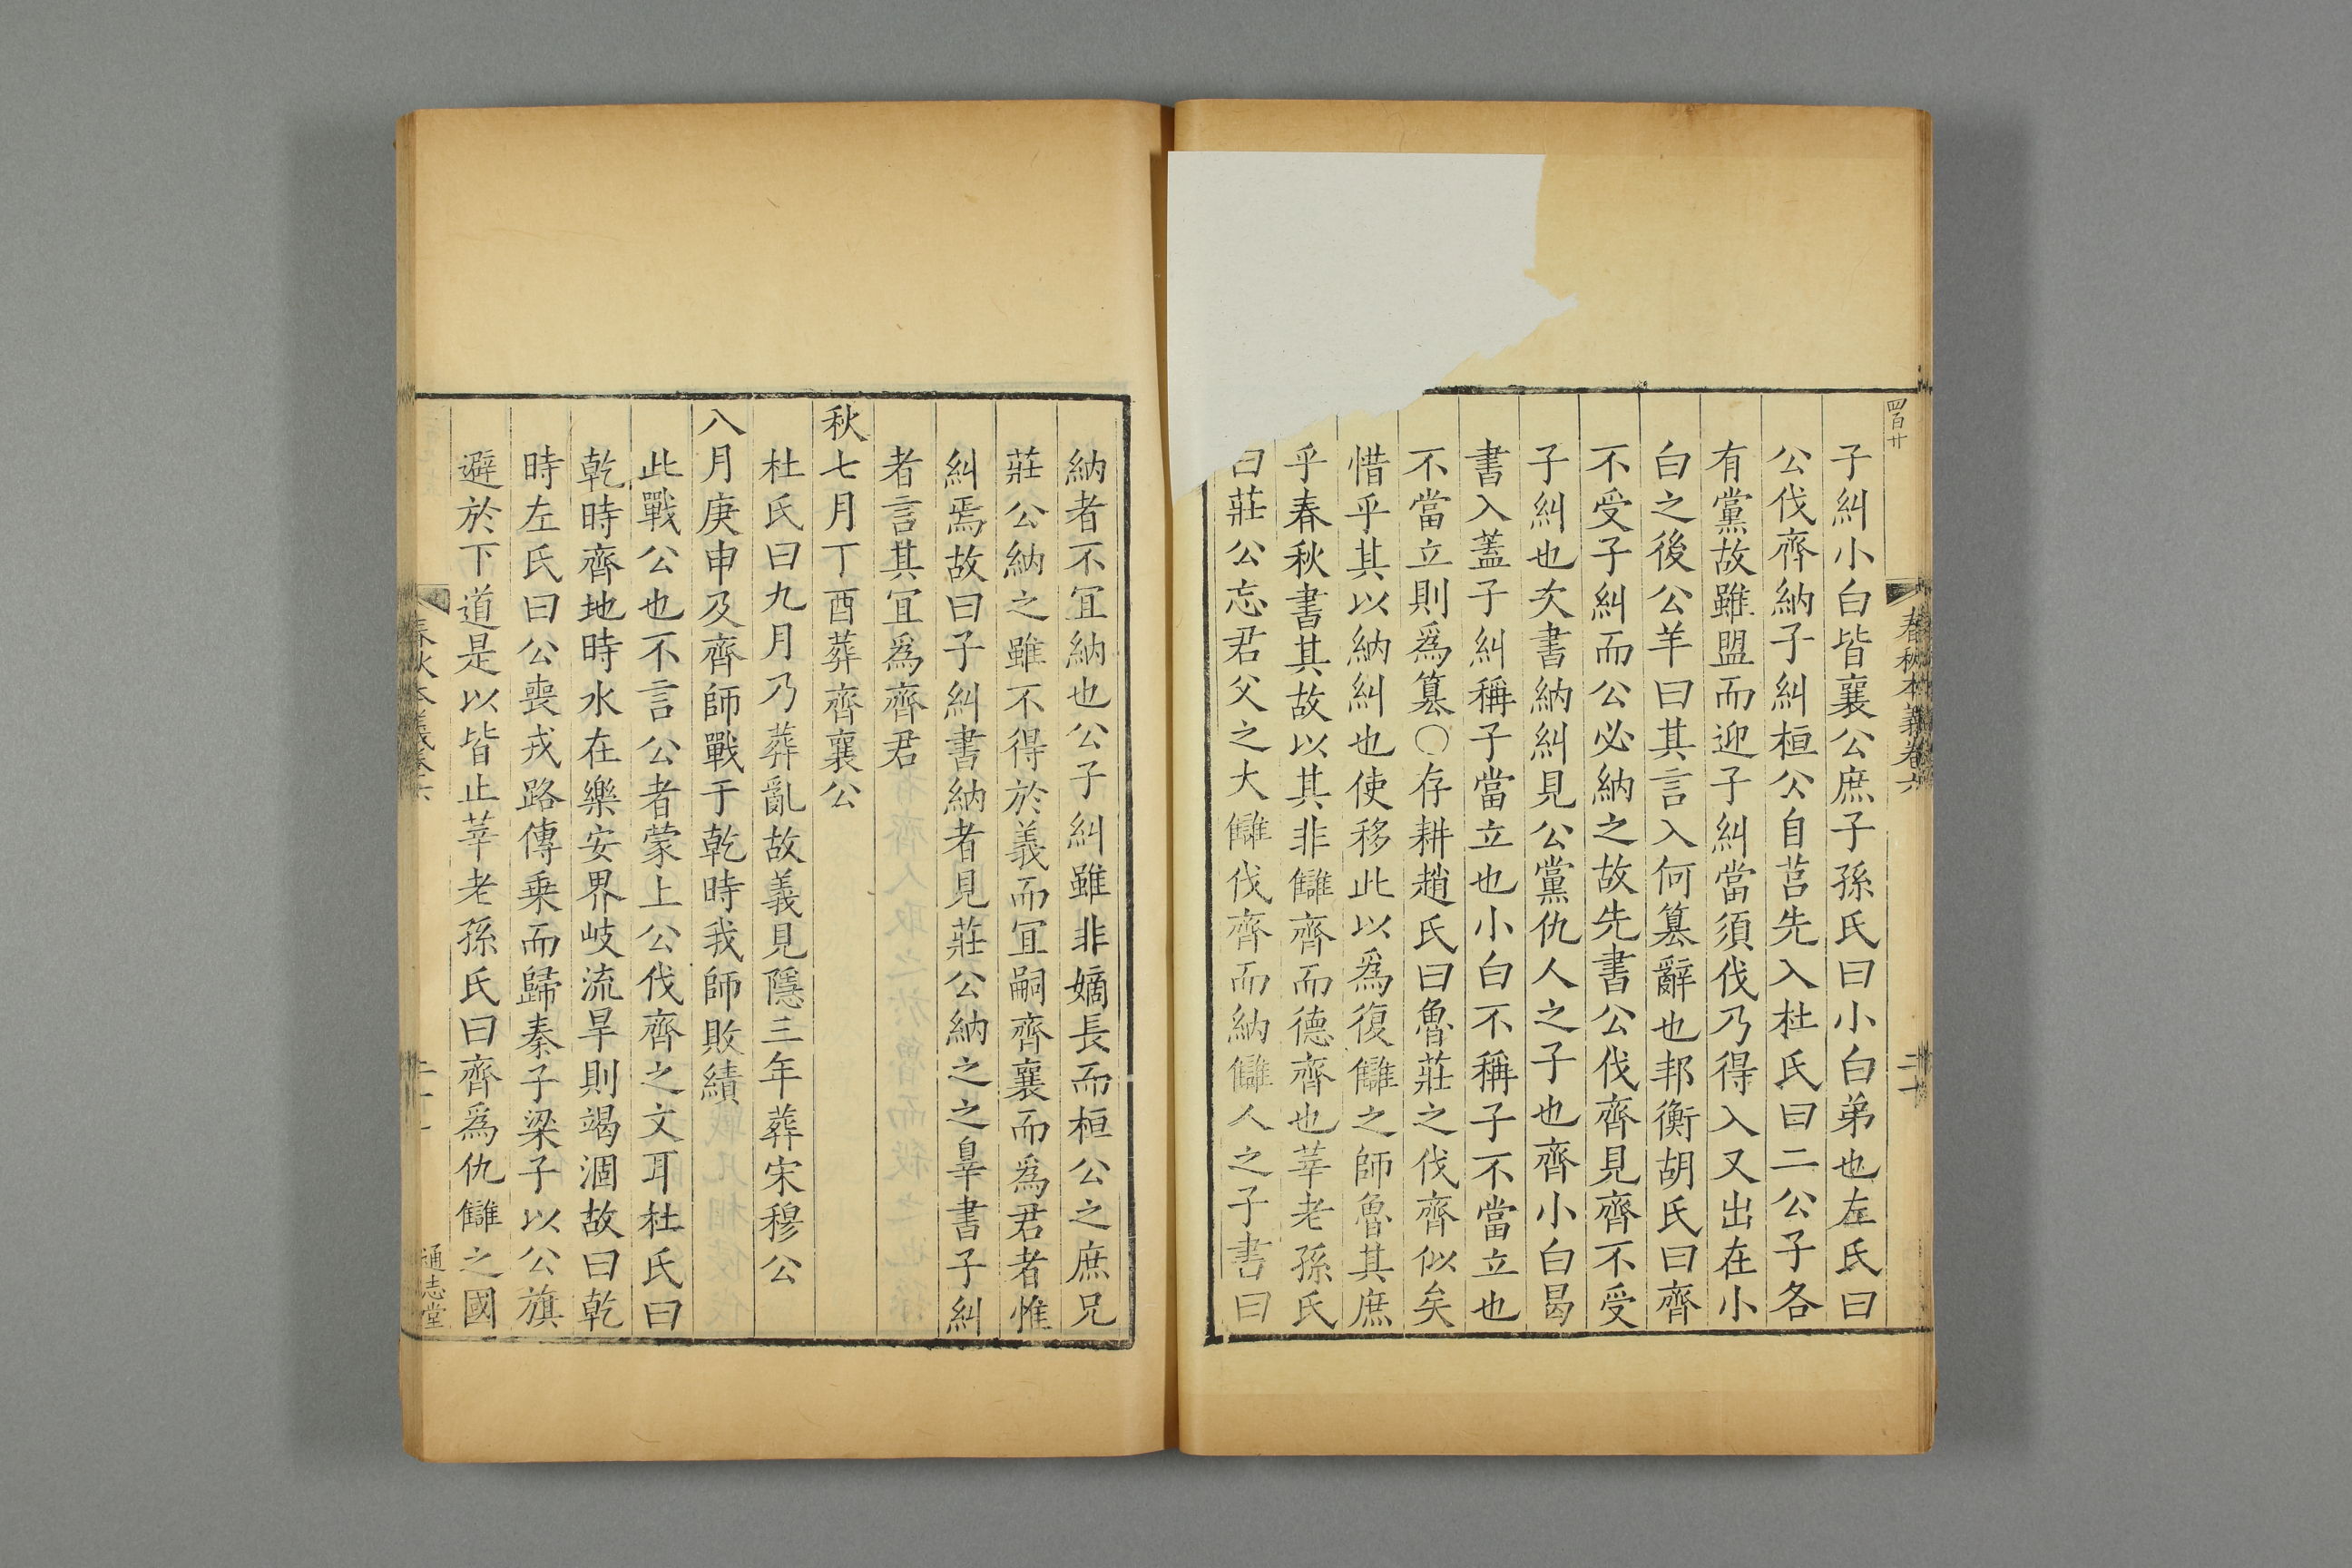 四百廿
春秋本義卷六
二十
子糾小白皆襄公庶子孫氏曰小白弟也左氏曰
公伐齊納子糾桓公自莒先入杜氏曰二公子各
有黨故雖盟而迎子糾當須伐乃得入又出在小
白之後公羊曰其言入何篡辭也邦衡胡氏曰齊
不受子糾而公必納之故先書公伐齊見齊不受
子糾也次書納糾見公黨仇人之子也齊小白曷
書入蓋子糾稱子當立也小白不稱子不當立也
不當立則爲篡○存耕趙氏曰魯莊之伐齊似矣
惜乎其以納糾也使移此以爲復讎之師魯其庶
乎春秋書其故以其非讎齊而德齊也莘老孫氏
曰莊公忘君父之大讎伐齊而納讎人之子書曰
納者不宜納也公子糾雖非嫡長而桓公之庶兄
莊公納之雖不得於義而宜嗣齊襄而爲君者惟
糾焉故曰子糾書納者見莊公納之之辠書子糾
者言其宜爲齊君
秋七月丁酉葬齊襄公
杜氏曰九月乃葬亂故義見隱三年葬宋穆公
八月庚申及齊師戰于乾時我師敗績
此戰公也不言公者蒙上公伐齊之文耳杜氏曰
乾時齊地時水在樂安界岐流旱則竭涸故曰乾
時左氏曰公喪戎路傳乗而歸秦子梁子以公旗
避於下道是以皆止莘老孫氏曰齊爲仇讎之國
春秋本義卷六
通志堂